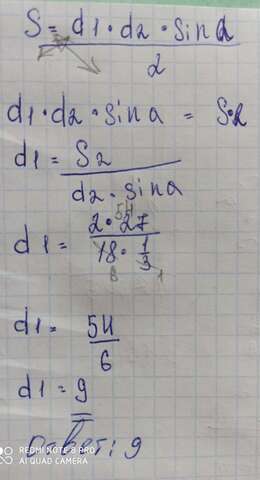 S = d1 · d2 · sin α
2
d1 · d2 · sin a = S·2
d1 = S2
d2 · sina
54
d1 = 2 · 27
18 · 1/3
6 1
d1 = 54
6
d1 = 9
Ответ: 9
REDMI NOTE 8 PRO
AI QUAD CAMERA